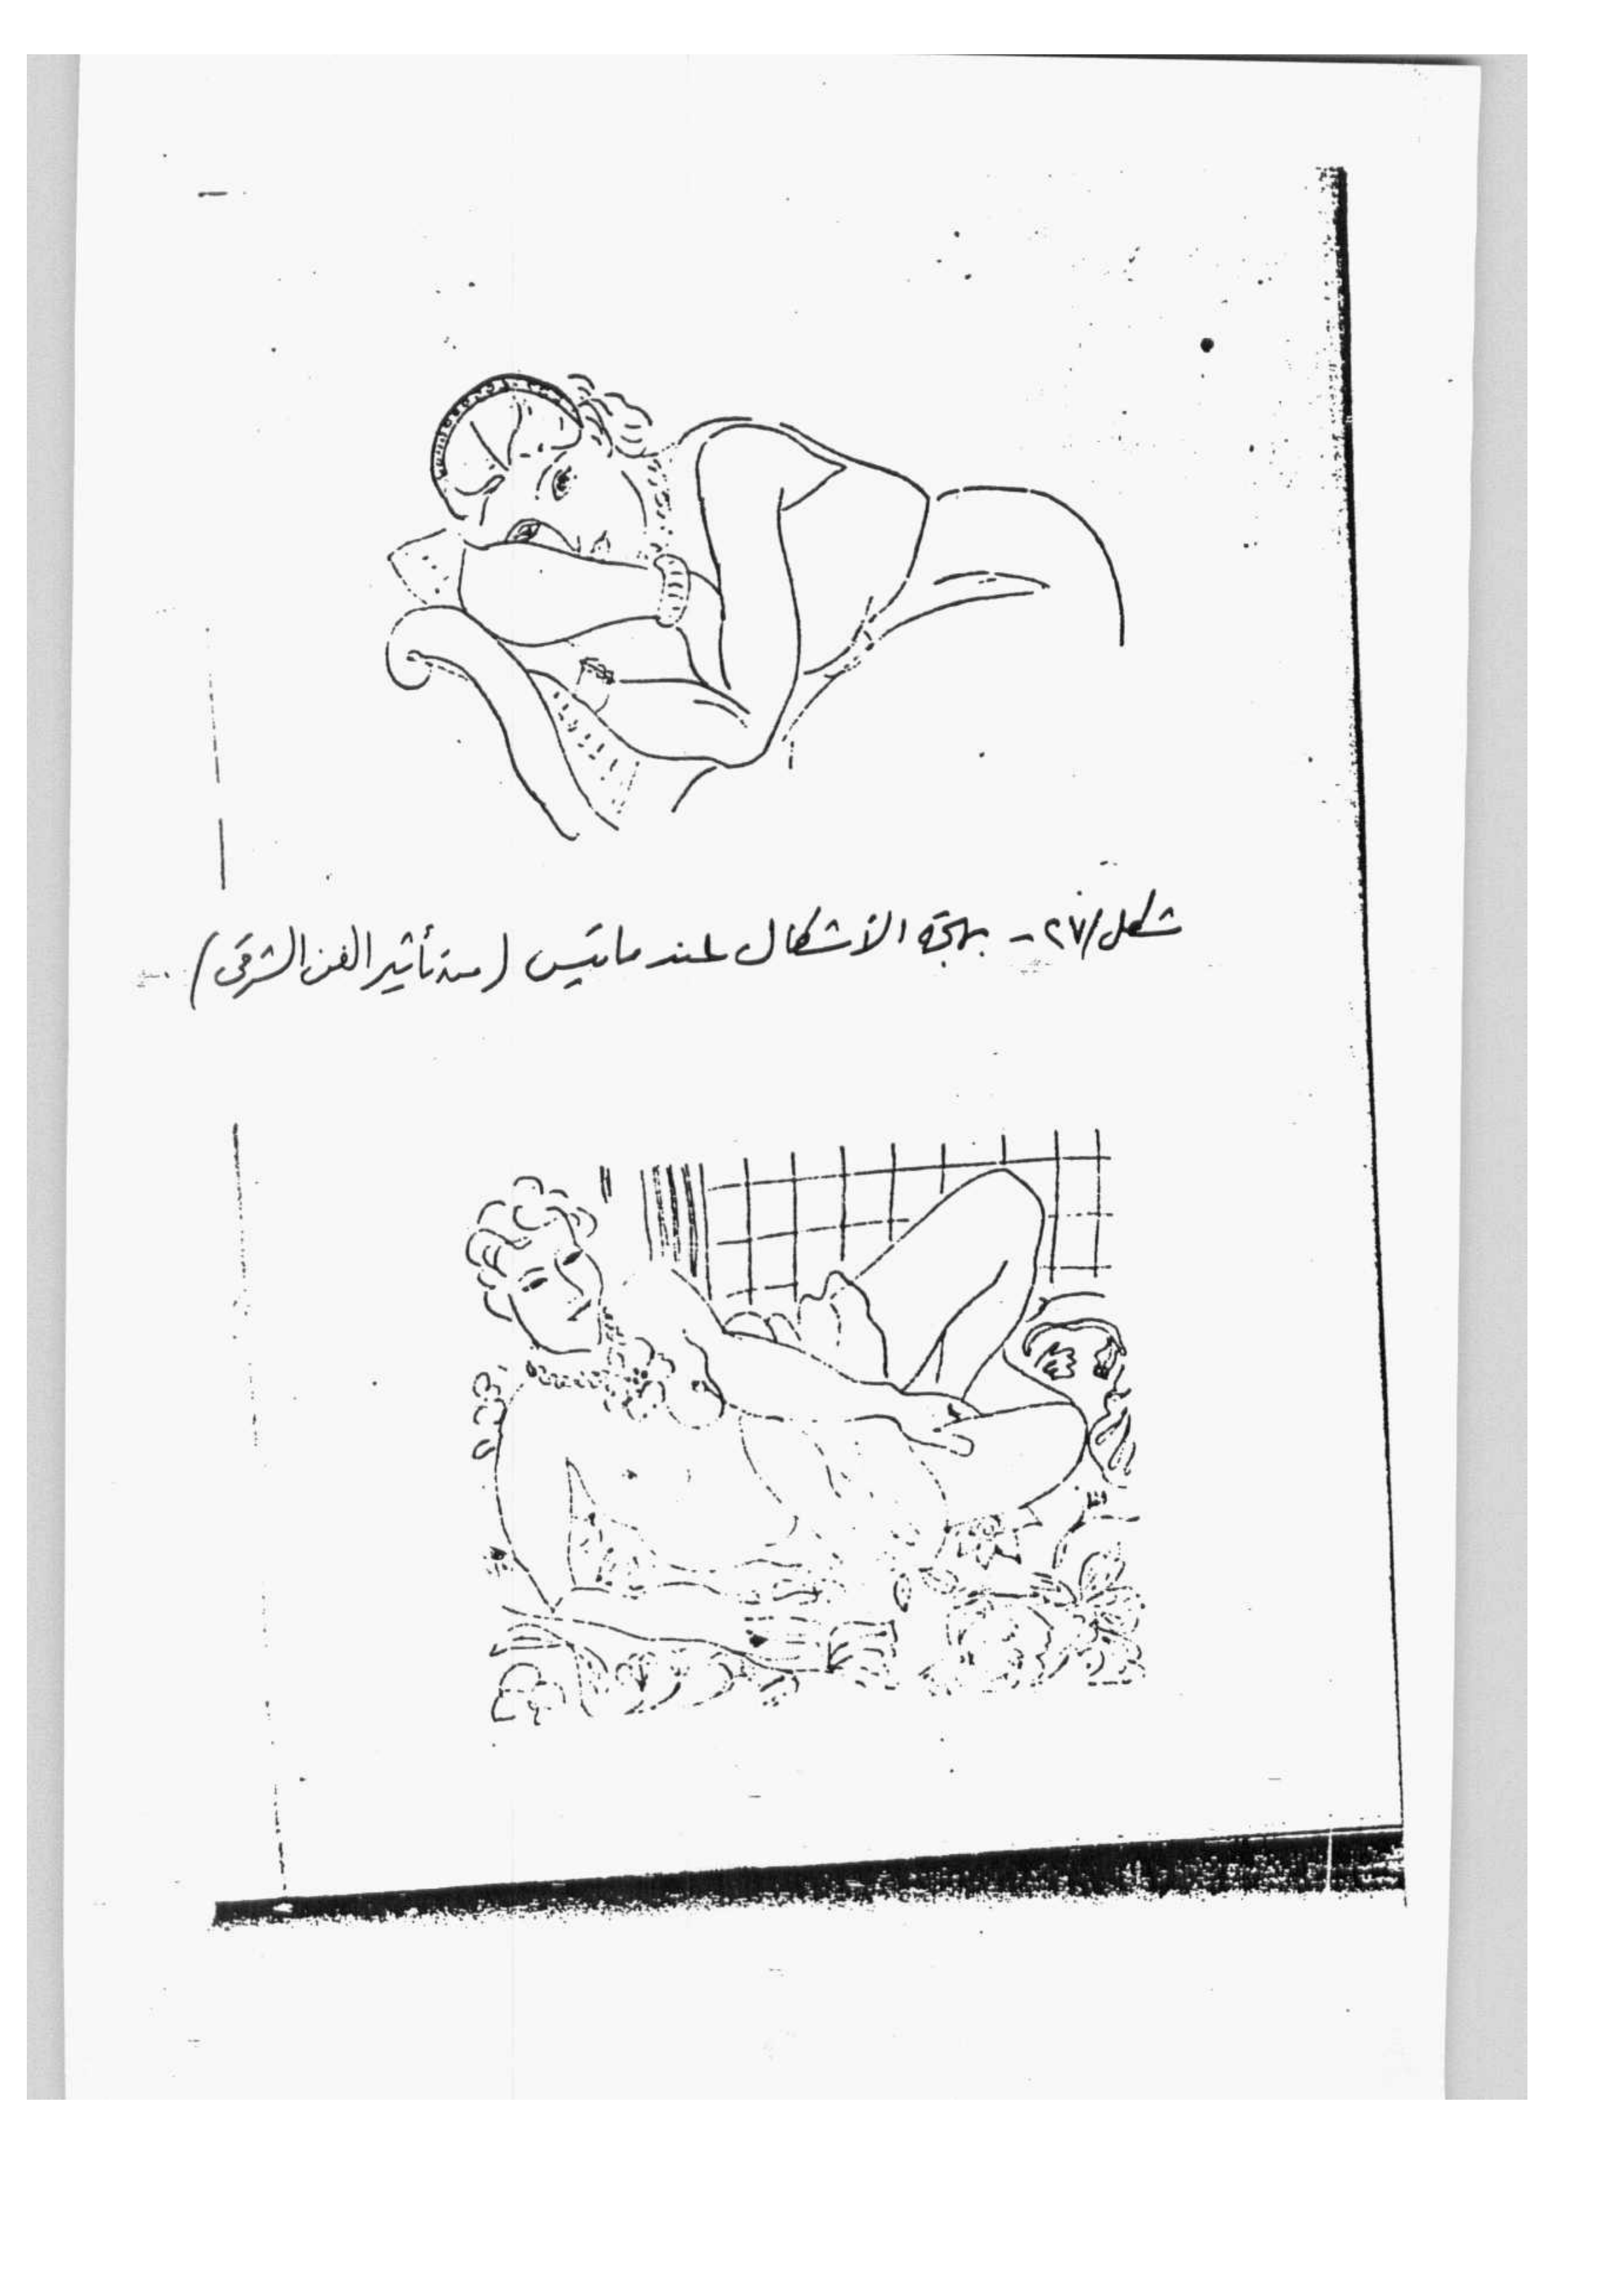 شكل/٢٧- بهجة الأشكال عند ماتيس (من تأثير الفن الشرقى)